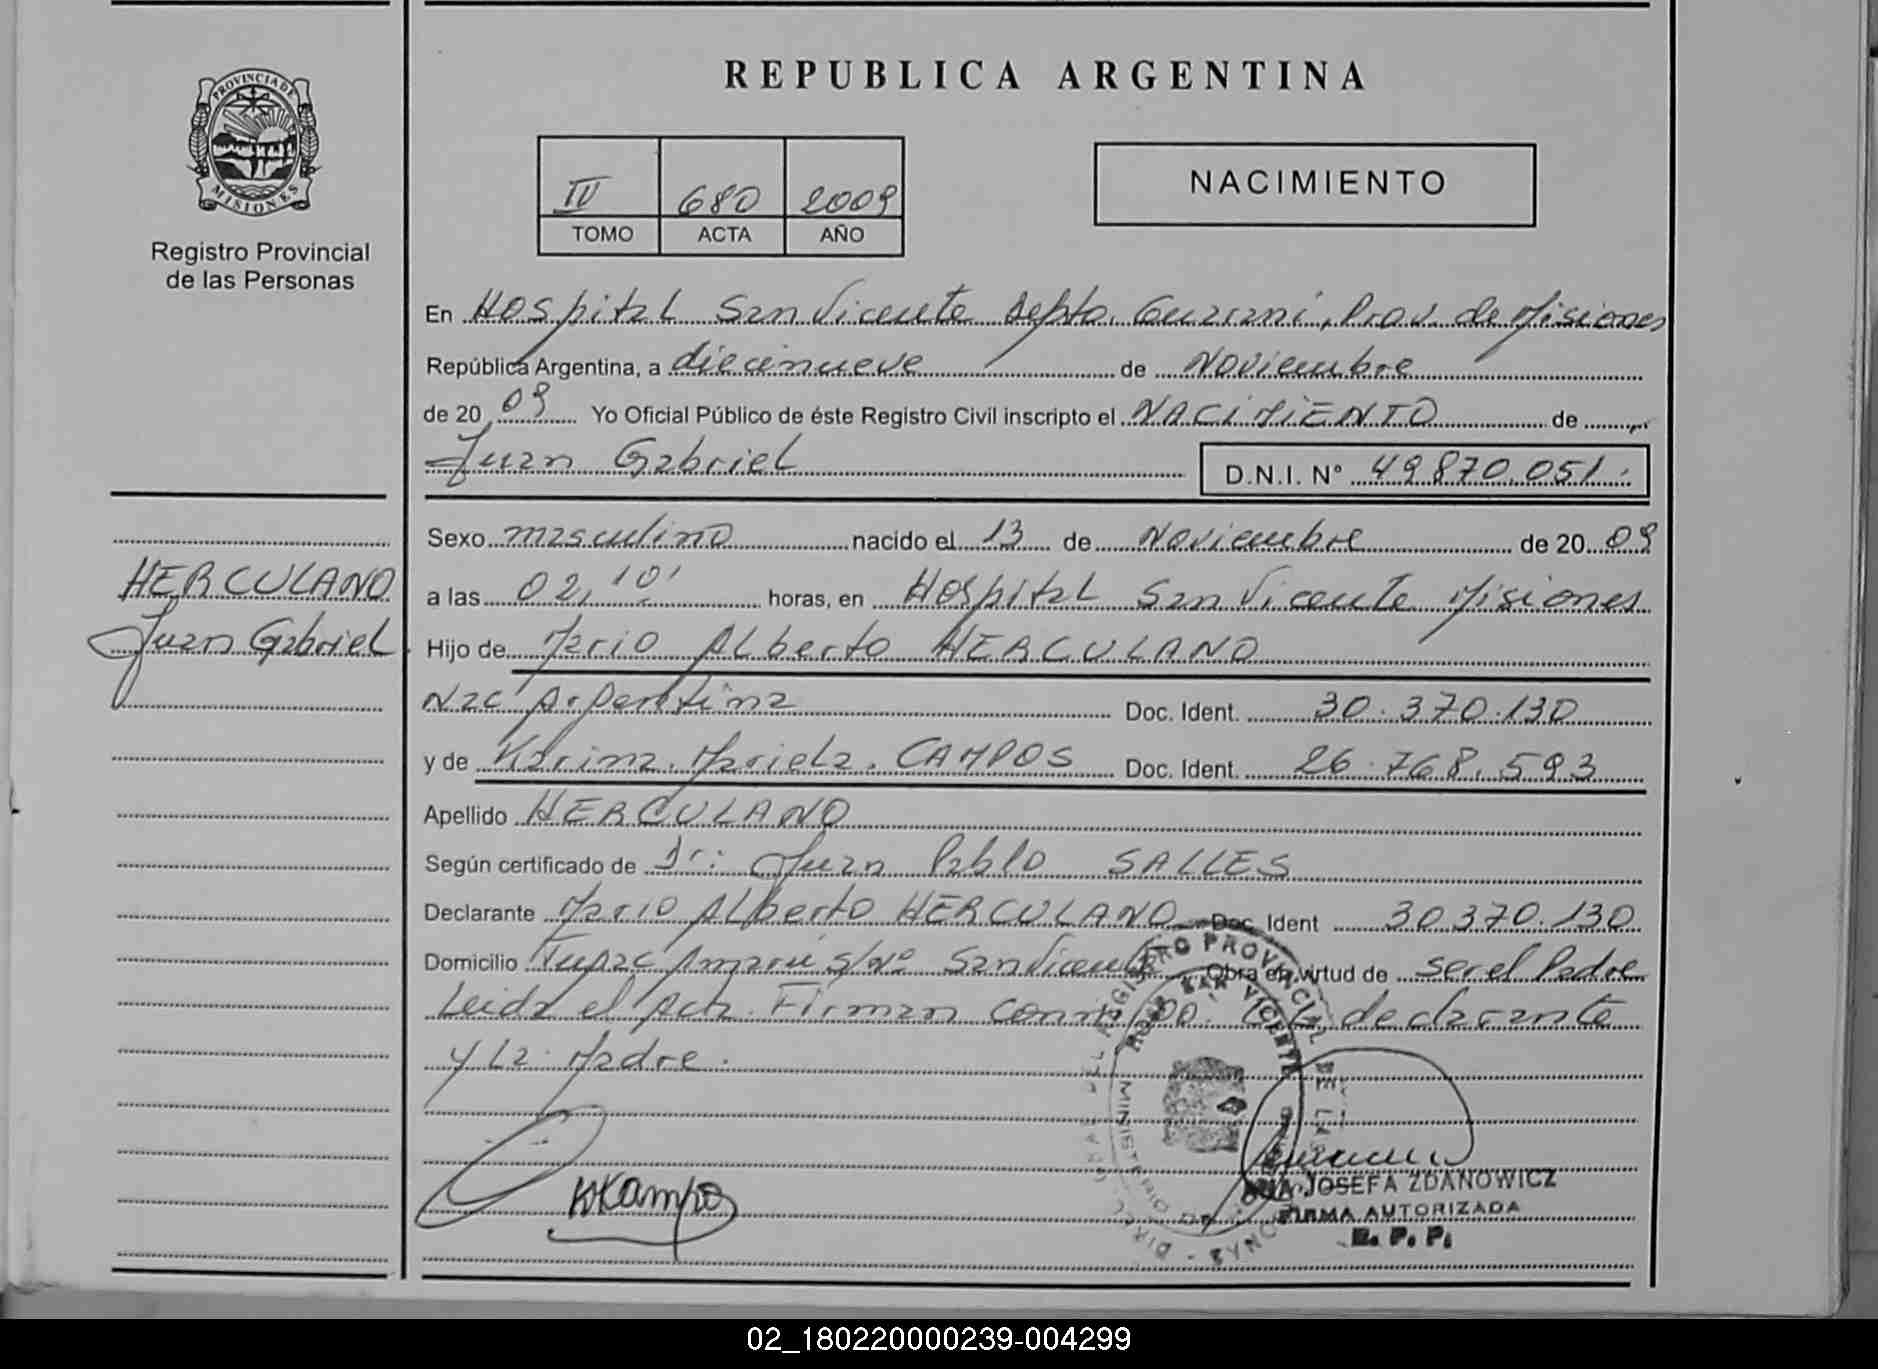 REPUBLICA ARGENTINA
PROVINCIA DE
MISIONES
Registro Provincial
de las Personas
IV 680 2009
TOMO ACTA AÑO
NACIMIENTO
En Hospital San Vicente Depto. Guarani, Prov. de Misiones
República Argentina, a diecinueve de Noviembre
de 20 09 Yo Oficial Público de éste Registro Civil inscripto el NACIMIENTO de
Juan Gabriel D.N.I. N° 49870.051.
HERCULANO
Juan Gabriel
Sexo masculino nacido el 13 de Noviembre de 20 09
a las 02,10' horas, en Hospital San Vicente Misiones
Hijo de Mario Alberto HERCULANO
Nac Argentina Doc. Ident. 30.370.130
y de Karina Mariela CAMPOS Doc. Ident. 26.768.593
Apellido HERCULANO
Según certificado de Dr: Juan Pablo SALLES
Declarante Mario Alberto HERCULANO Doc. Ident 30370.130
Domicilio Tupac Amaru S/Nº San Vicente Obra en virtud de ser el Padre
Leida el Acta Firman conmigo declarante
y La Madre.
KKampo
JOSEFA ZDANOWICZ
FIRMA AUTORIZADA
R. P. P.
REGISTRO PROVINCIAL DE LAS
SAN VICENTE
02_180220000239-004299